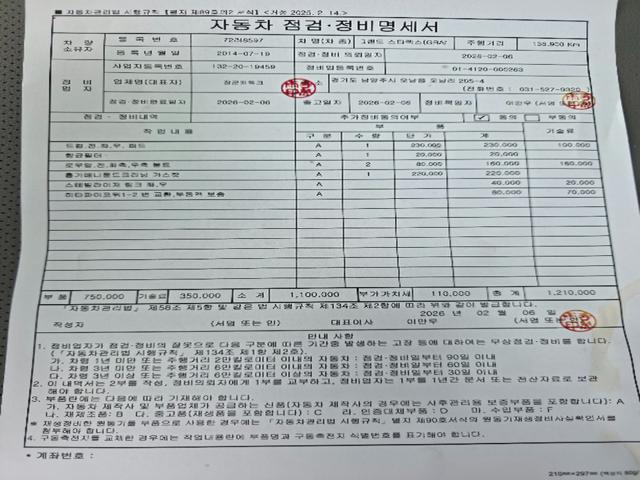 ■ 자동차관리법 시행규칙 [별지 제89호의2 서식] <개정 2025. 2. 14.>
자동차 점검·정비명세서
차량 소유자 등록번호 72러8597 차명(차종) 그랜드 스타렉스(GRAN 주행거리 138,930 Km
등록년월일 2014-07-19 점검·정비 의뢰일자 2026-02-06
정비업자 사업자등록번호 132-20-19459 정비업등록번호 01-4120-000263
업체명(대표자) 주소 경기도 남양주시 오남읍 오남리 205-4
(전화번호 : 031-527-9320
점검·정비완료일자 2026-02-06 출고일자 2026-02-06 정비책임자 이만우 (서명
점검·정비내역 추가정비동의여부 ✓ 동의 부동의
작업내용 부품 기술료
구분 수량 단가 계
드럼,전,좌,우, 패드 A 1 230,000 230,000 100,000
항균필터 A 1 20,000 20,000
로우암,전,좌측,우측 볼트 A 2 80,000 160,000 160,000
흡기매니폴드크리닝 가스켓 A 1 220,000 220,000
스태빌라이저 링크 좌,우 A 40,000 20,000
히타파이프뒤1-2 번 교환,부동액 보충 A 80,000 70,000
부품 750,000 기술료 350,000 소계 1,100,000 부가가치세 110,000 총계 1,210,000
「자동차관리법」 제58조 제5항 및 같은 법 시행규칙 제134조 제2항에 따라 위와 같이 발급합니다.
2026 년 02 월 06 일
작성자 (서명 또는 인) 대표이사 이만우 (서명 또는
안내 사항
1. 정비업자가 점검·정비의 잘못으로 다음 구분에 따른 기간내 발생하는 고장 등에 대하여는 무상점검·정비를 합니다.
(「자동차관리법 시행규칙」 제134조 제1항 제2호).
가. 차령 1년 미만 또는 주행거리 2만킬로미터 이내의 자동차 : 점검·정비일부터 90일 이내
나. 차령 3년 미만 또는 주행거리 6만킬로미터 이내의 자동차 : 점검·정비일부터 60일 이내
다. 차령 3년 이상 또는 주행거리 6만킬로미터 이상의 자동차 : 점검·정비일부터 30일 이내
2. 이 내역서는 2부를 작성, 정비의뢰자에게 1부를 교부하고, 정비업자는 1부를 1년간 문서 또는 전산자료로 보관
해야 합니다.
3. 부품란에는 다음에 따라 기재해야 합니다.
가. 자동차 제작사 및 부품업체가 공급하는 신품(자동차 제작사의 경우에는 사후관리용 보증부품을 포함합니다): A
나. 재제조품: B 다. 중고품(재생품을 포함합니다) : C 라. 인증대체부품 : D 마. 수입부품 : F
※ 재생정비한 원동기를 부품으로 사용한 경우에는 「자동차관리법 시행규칙」 별지 제90호서식의 원동기재생정비사실확인서를
첨부해야 합니다.
4. 구동축전지를 교체한 경우에는 작업내용란에 부품명과 구동축전지 식별번호를 표기해야 합니다.
* 계좌번호 :
210㎜×297㎜